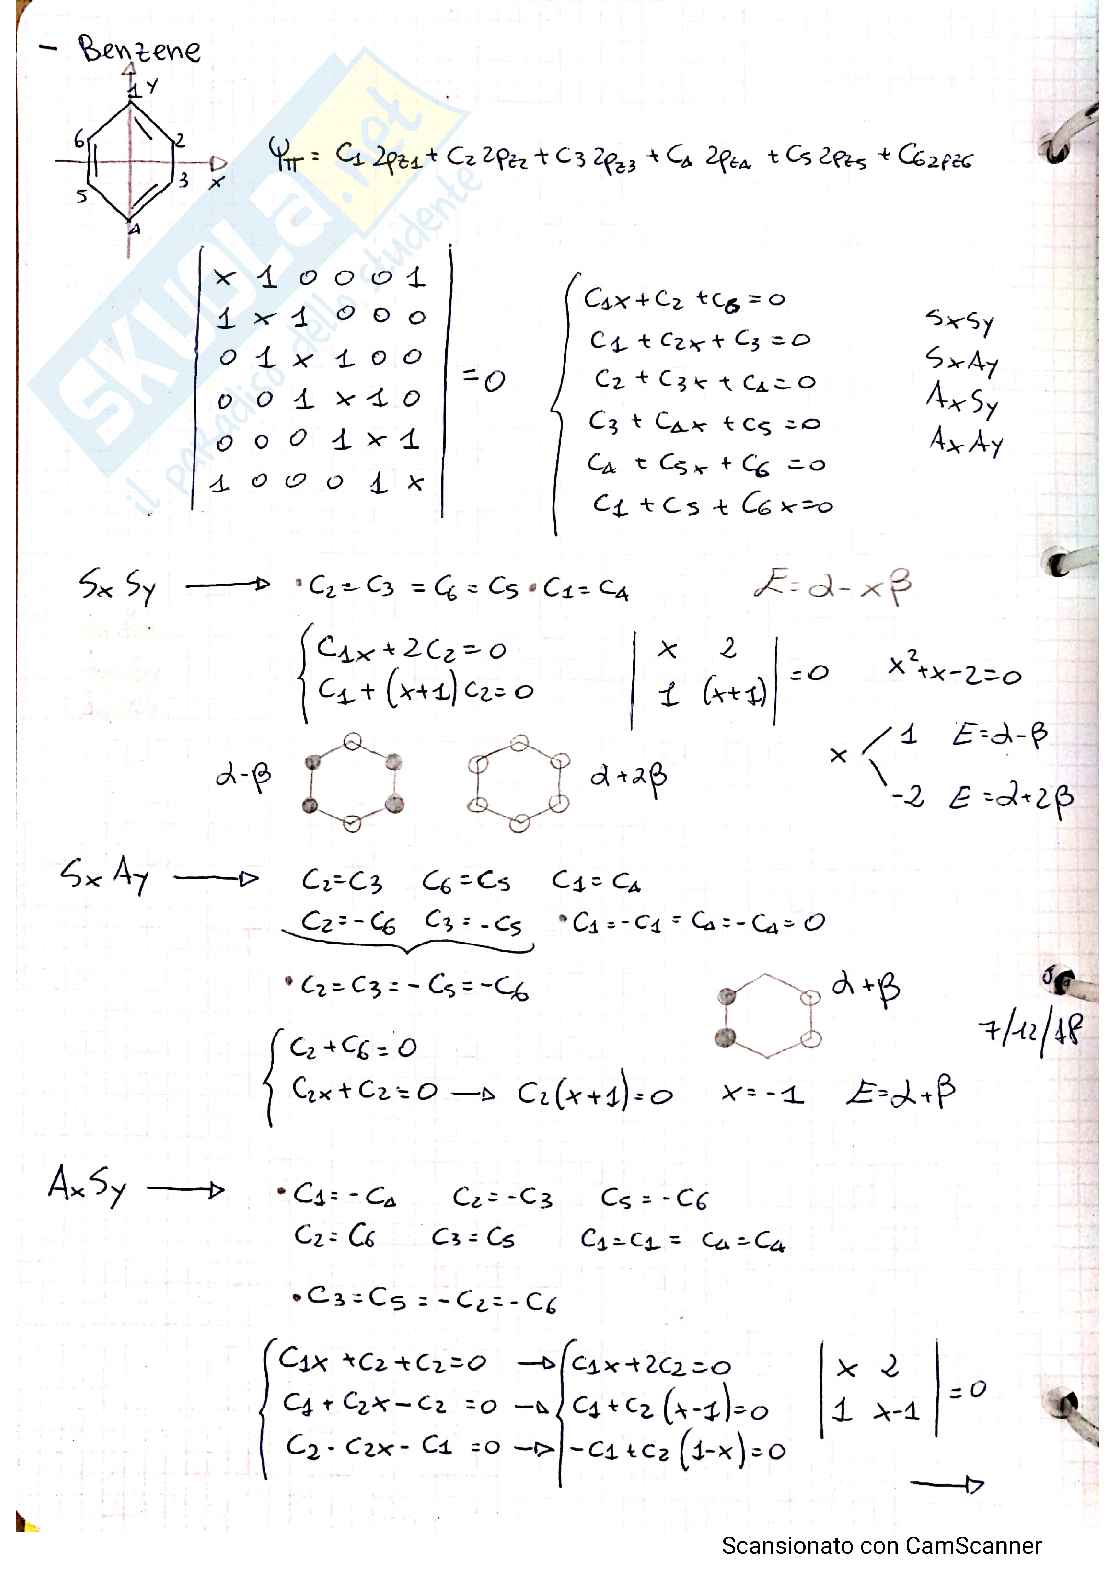 - Benzene
1 Y
6 2
X
5 3
4
Ψπ = C1 2pz1 + C2 2pz2 + C3 2pz3 + C4 2pz4 + C5 2pz5 + C6 2pz6
SKUOLA.net
il paradiso dello studente
x 1 0 0 0 1
1 x 1 0 0 0
0 1 x 1 0 0
0 0 1 x 1 0
0 0 0 1 x 1
1 0 0 0 1 x
=0
C1x + C2 + C6 = 0
C1 + C2x + C3 = 0
C2 + C3x + C4 = 0
C3 + C4x + C5 = 0
C4 + C5x + C6 = 0
C1 + C5 + C6x = 0
SxSy
SxAy
AxSy
AxAy
SxSy → • C2 = C3 = C6 = C5 • C1 = C4 E = α - xβ
C1x + 2C2 = 0
C1 + (x+1)C2 = 0
x 2
1 (x+1)
=0 x²+x-2=0
x 1 E=α-β
-2 E=α+2β
α-β α+2β
SxAy → C2=C3 C6=C5 C1=C4
C2=-C6 C3=-C5 • C1=-C1=C4=-C4=0
• C2=C3=-C5=-C6
α+β
7/12/18
C2+C6=0
C2x+C2=0 → C2(x+1)=0 x=-1 E=α+β
AxSy → • C1=-C4 C2=-C3 C5=-C6
C2=C6 C3=C5 C1=C1= C4=C4
• C3=C5=-C2=-C6
C1x+C2+C2=0 → C1x+2C2=0
C1+C2x-C2=0 → C1+C2(x-1)=0
C2-C2x-C1=0 → -C1+C2(1-x)=0
x 2
1 x-1
=0
→
Scansionato con CamScanner